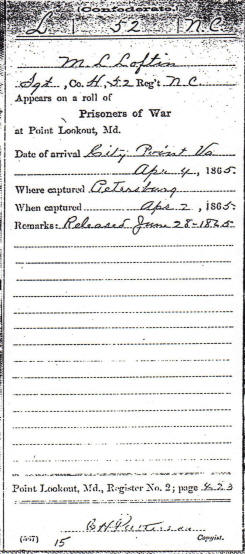 (Confederate)
L | 52 | N.C.
M L Loftin
Sgt, Co. H, 52 Reg't N.C.
Appears on a roll of
Prisoners of War
at Point Lookout, Md.
Date of arrival City Point Va
Apr 4, 1865.
Where captured Petersburg
When captured Apr 2, 1865.
Remarks: Released June 28-1865
Point Lookout, Md., Register No. 2; page 423
(567) 15 Copyist.